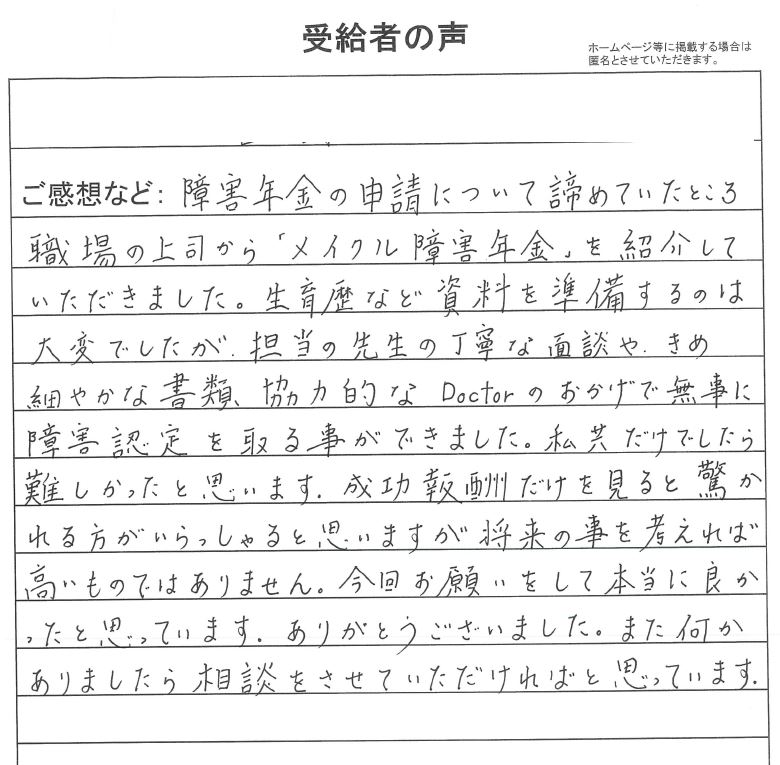 受給者の声
ホームページ等に掲載する場合は
匿名とさせていただきます。
ご感想など：障害年金の申請について諦めていたところ
職場の上司から「メイクル障害年金」を紹介して
いただきました。生育歴など資料を準備するのは
大変でしたが、担当の先生の丁寧な面談や、きめ
細やかな書類、協力的なDoctorのおかげで無事に
障害認定を取る事ができました。私共だけでしたら
難しかったと思います。成功報酬だけを見ると驚か
れる方がいらっしゃると思いますが将来の事を考えれば
高いものではありません。今回お願いをして本当に良か
ったと思っています。ありがとうございました。また何か
ありましたら相談をさせていただければと思っています。